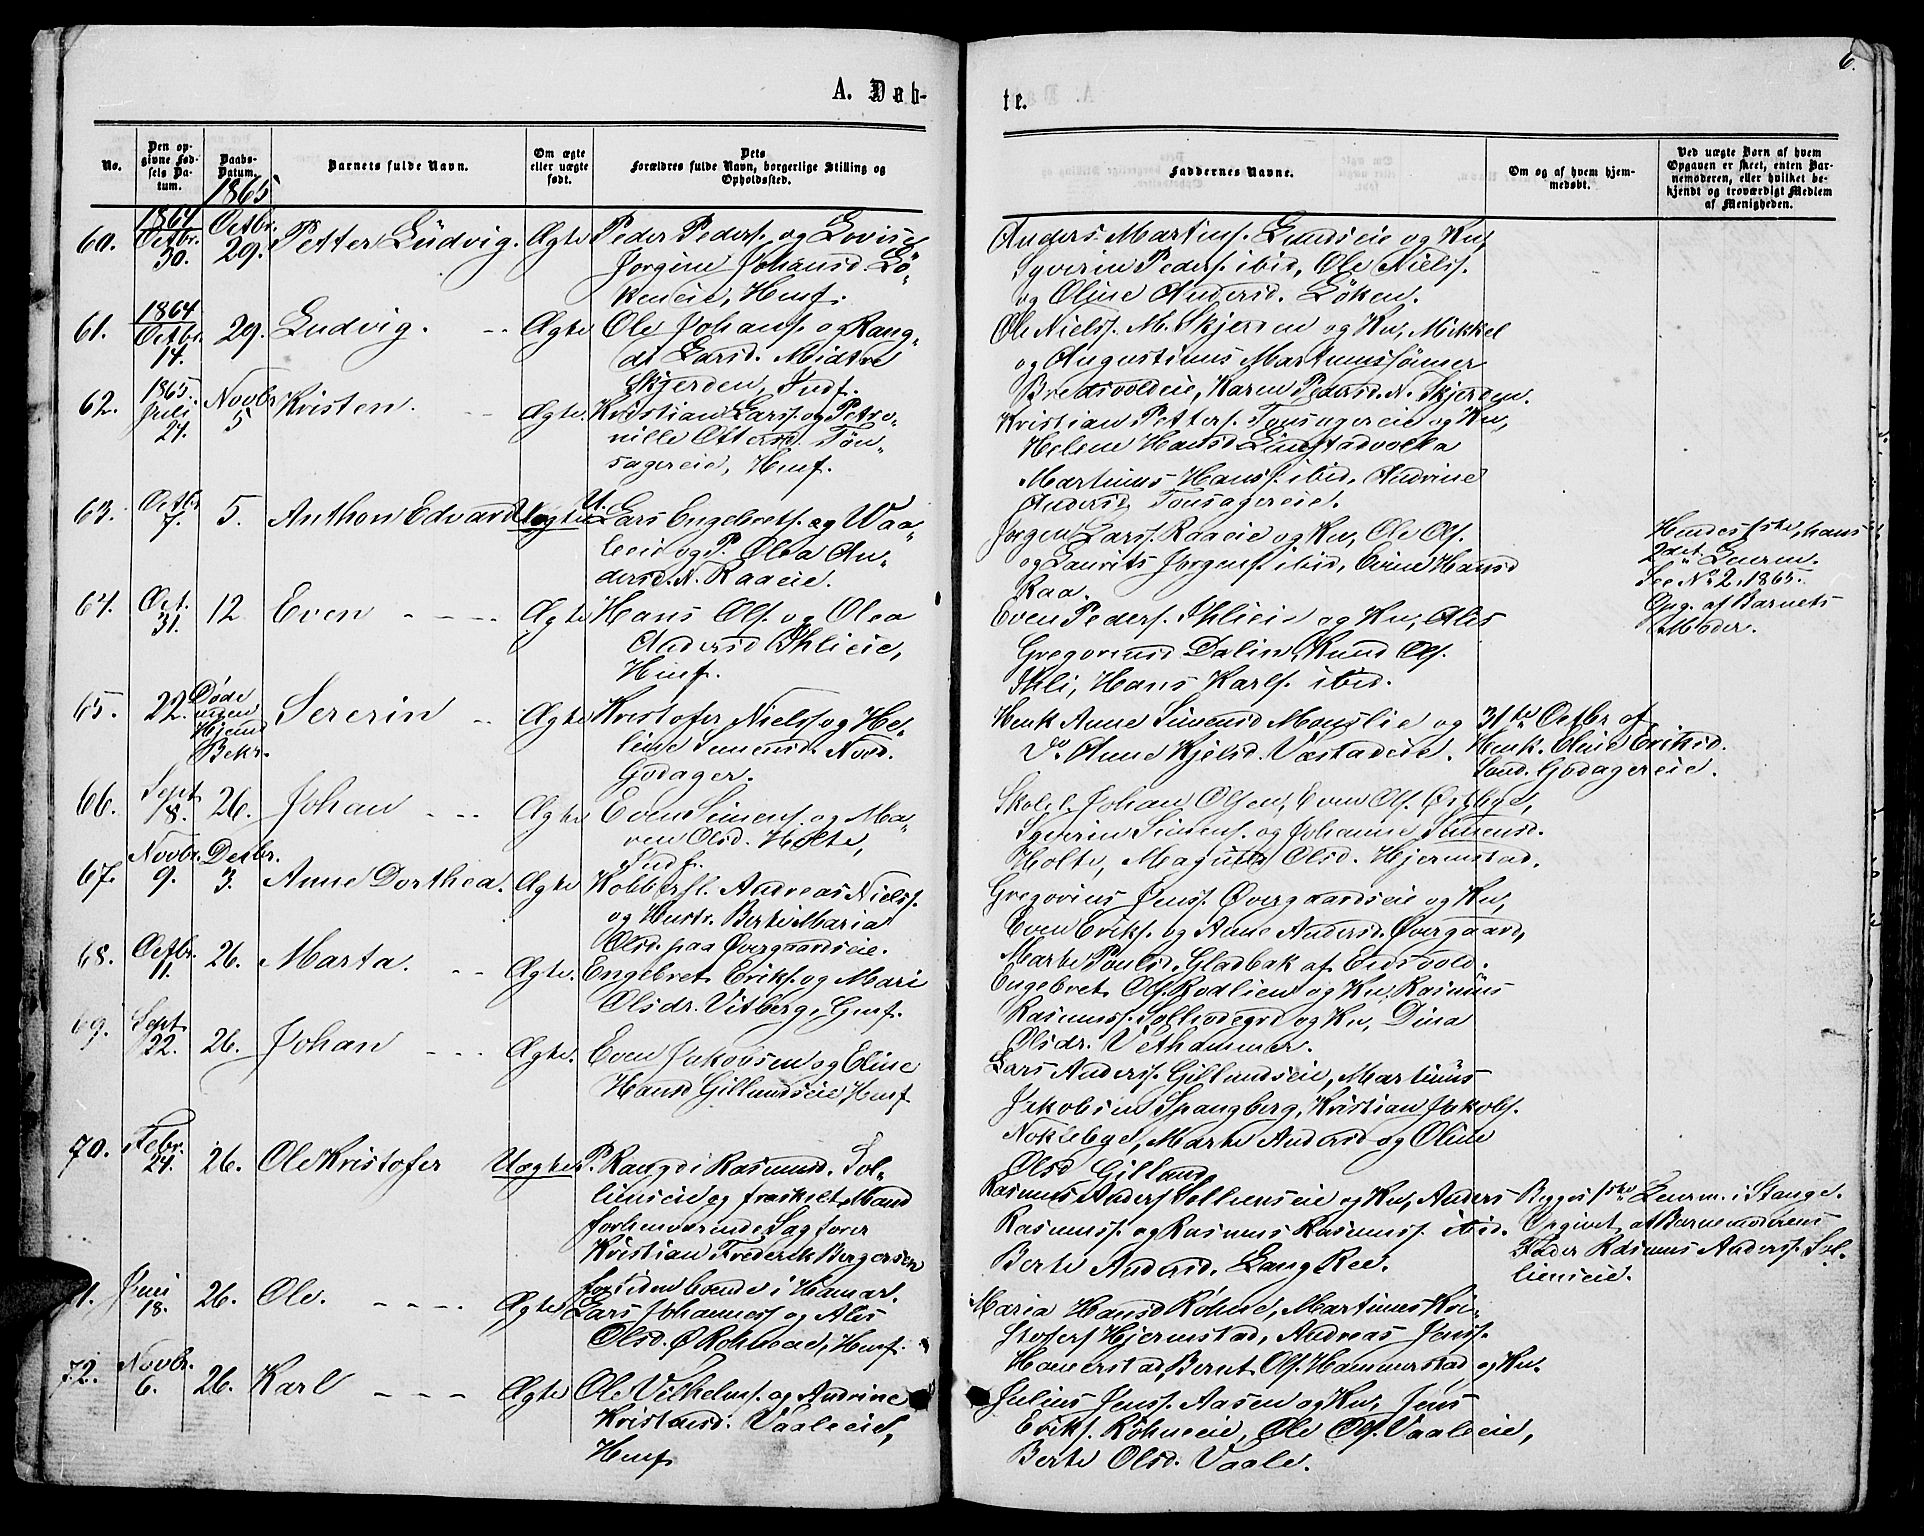 6.
A. Døb-
te.
No.
Den op-
givne Fød-
sels Da-
tum.
Daabs-
Datum.
1865
Barnets fulde Navn.
Om ægte
eller uægte
født.
Dets
Forældres fulde Navn, borgerlige Stilling og
Opholdssted.
Faddernes Navne.
Om og af hvem hjem-
medøbt.
Ved uægte Børn af hvem
Opgaven er skeet, enten Bar-
nemoderen, eller hvilket be-
kjendt og troværdigt Medlem
af Menigheden.
60.
1864
Octbr.
30.
Octbr.
29.
Petter Ludvig.
Ægte
Peder Peders. og Lovise
Jorgine Johansd. Lø-
keneie, Husf.
Anders Martins. Lundseie og Ku,
Syverin Peders. ibid, Ole Niels.
og Oline Andersd. Løken.
61.
1864
Octbr.
14.
29.
Ludvig.
Ægte
Ole Johans. og Rang-
di Larsd. Midtre
Skjerden, Indf.
Ole Nielss. M. Skjerden og Ku, Mikkel
og Augustinus Martinussønner
Bredsvoldeie, Karen Pedersd. N. Skjerden.
62.
1865.
Juli
24.
Novbr.
5
Kristen.
Ægte.
Kristian Larss. og Petro-
nille Ottersd. Tøn-
sagereie, Husf.
Kristian Petters. Tonsagereie og Ku,
Helene Hansd
Martinius Hanss. ibid. Andrine
Andersd. Tonsagereie.
63.
Octbr
7.
5.
Anthon Edvard
Uægte
U. Lars Engebrets. og Vaa-
leeie og P. Olea An-
dersd. N. Raaeie.
Jorgen Larss. Raaeie og Ku, Ole Ols.
og Laurits Jorgens. ibid, Oline Hansd
Raa.
Hendes 1ste, hans
2det Leierm.
See No 2, 1865.
Opg. af Barnets
Moder.
64.
Oct.
31.
12
Even
Ægte
Hans Ols. og Olea
Andersd Ihlieie,
Husf.
Even Peders. Ihlieie og Ku, Alis
Gregoriusd Dalin, Knud Ols.
Ihli, Hans Karls. ibid.
65.
22.
Døde
uden
Hjem
Bekr.
Sererin
Ægte
Kristofer Niels. og He-
line Simensd. Nord.
Godager.
Henk Anne Simensd Manslie og
Do Anne Kjelsd. Vestadeie.
31te Octbr af
Henk. Eline Eriksd.
Sønd. Godagereie.
66.
Sept
18.
26.
Johan
Ægte
Even Simens. og Ma-
ren Olsd. Holte,
Indf.
Skolel. Johan Olsen, Even Ols. Østbye,
Syverin Simens. og Johanne Simensd.
Holte, Olsd. Hjermstad.
67.
Novbr.
9.
Decbr.
3.
Anne Dorthea.
Ægte
Kobbersl. Andreas Nielss.
og Hustr. Berte Maria
Olsd. paa Overgaardseie.
Gregorius Jenss. Overgaardseie og Ku,
Even Eriks. og Anne Andersd. Øvergaard,
Marte Poulsd. Gladbak af Eidsvold.
68.
Octbr.
11.
26.
Marta.
Ægte.
Engebret Eriks. og Mari
Olsdr. Vitberg, Husf.
Engebret Ols. Rodlien og Ku, Rasmus
Rasmuss. og Ku, Dina
Olsdr. Vethammer.
69.
Sept
22.
26.
Johan
Ægte.
Even Jakobsen og Eline
Hansd Gillundseie, Husf
Lars Anderss. Gillundseie, Martinus
Jakobsen Spangberg, Kristian Jakobs.
Noklebye, Marte Andersd og Oline
Olsd Gillund.
70.
Febr.
24.
26.
Ole Kristofer
Uægte
P. Rangdi Rasmusd. Sol-
lienseie og fraskilt Mand
forhenværende Sagfører
Kristian Frederik Bergersen
for tiden boende i Hamar.
Rasmus Anders Sollienseie og Ku, Anders
Rasmuss. og Rasmus Rasmuss. ibid.
Berte Andersd. Lang Ree.
Begges 1ste Leierm. i Stange.
Opgivet af Barnemoderens
Fader Rasmus Anderss. Sol-
lienseie.
71.
Juni
18.
26.
Ole.
Ægte
Lars Johanness og Alis
Olsd. Ø Rohneeie, Husf.
Maria Hansd Røhne, Martinus Kri-
stofers Hjermstad, Andreas Jenss.
Hamerstad, Bernt Ols. Hammerstad og Ku.
72.
Novbr.
6.
26.
Karl
Ægte
Ole Vilhelms. og Andrine
Kristiansd. Vaaleeie,
Husf
Julius Jenss. Aasen og Ku, Jens
Eriks. Røhneeie, Ole Ols. Vaaleeie,
Berte Olsd. Vaale.